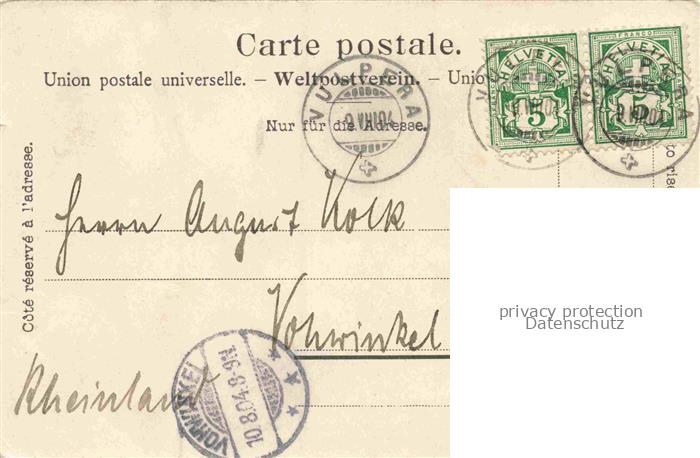 Carte postale.
Union postale universelle. – Weltpostverein. – Unio
Nur für die Adresse.
Côté réservé à l'adresse.
FRANCO
HELVETIA
5
FRANCO
HELVETIA
5
VULPERA
9.VIII.04
Herrn August Kolk
Vohwinkel
Rheinland
VOHWINKEL
10.8.04.8-9N.
privacy protection
Datenschutz